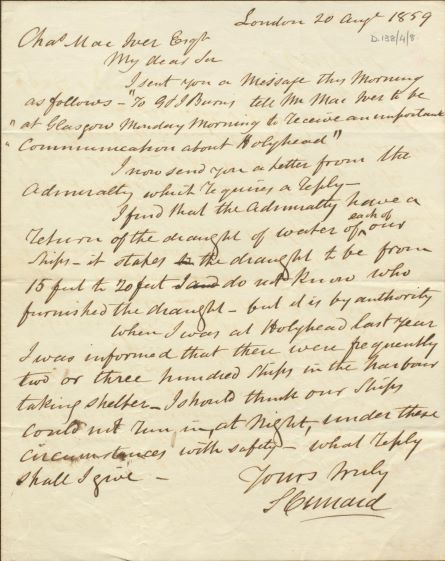 London 20 Augt 1859
D.138/4/8.
Chas Mac Iver Esqr
My dear Sir
I sent you a Message this Morning
as follows - "To G & J Burns tell Mr Mac Iver to be
"at Glasgow Monday Morning to receive an important
"Communication about Holyhead"
I now send you a letter from the
Admiralty which requires a reply -
I find that the Admiralty have a
return of the draught of water of each of our
Ships - it states the draught to be from
15 feet to 20 feet I do not know who
furnished the draught - but it is by authority
When I was at Holyhead last year
I was informed that there were frequently
two or three hundred Ships in the harbour
taking shelter - I should think our Ships
could not run in, at Night, under these
circumstances with safety - what reply
shall I give -
Yours truly
S Cunard